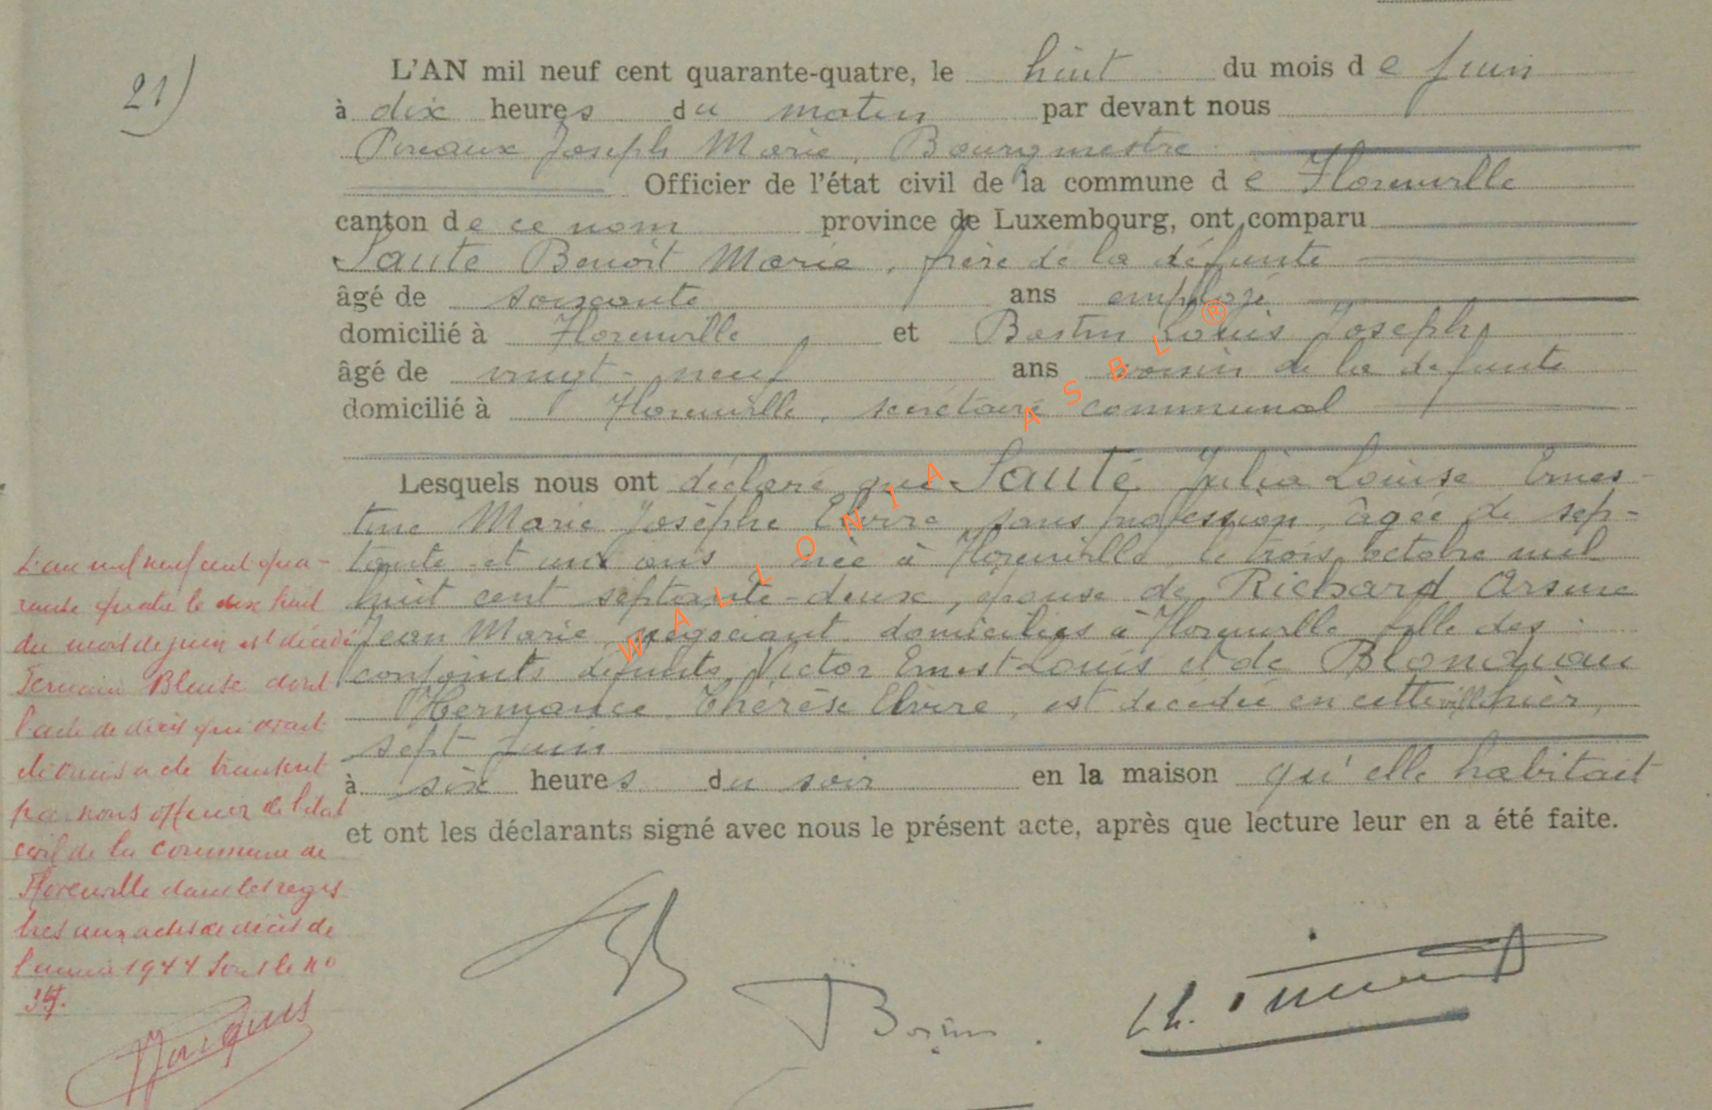 21)
L'AN mil neuf cent quarante-quatre, le huit du mois de juin
à dix heures du matin par devant nous
Joseph Marie, Bourgmestre
Officier de l'état civil de la commune de Florenville
canton de ce nom province de Luxembourg, ont comparu
Sauté Benoît Marie, frère de la défunte
âgé de soixante ans employé
domicilié à Florenville et Bastin Louis Joseph
âgé de vingt-neuf ans voisin de la defunte
domicilié à Florenville, secrétaire communal
Lesquels nous ont déclaré que Sauté Julia Louise Ernes-
tine Marie Josèphe Elvire, sans profession, âgée de sep-
tante et un ans née à Florenville le trois octobre mil
huit cent septante-deux, épouse de Richard Arsène
Jean Marie négociant domiciliés à Florenville fille des
conjoints défunts Victor Ernest Louis et de Blondiau
Hermance Thérèse Elvire, est décédée en cette ville hier,
sept juin
à six heures du soir en la maison qu'elle habitait
et ont les déclarants signé avec nous le présent acte, après que lecture leur en a été faite.
L'an mil neuf cent qua-
rante quatre le dix huit
du mois de juin est décédé
dont
l'acte de décès qui
par nous officier de l'état
civil de la commune de
Florenville dans les regis
tres aux actes de décès de
l'année 1944 sous le no
WALLONIA ASBL ®